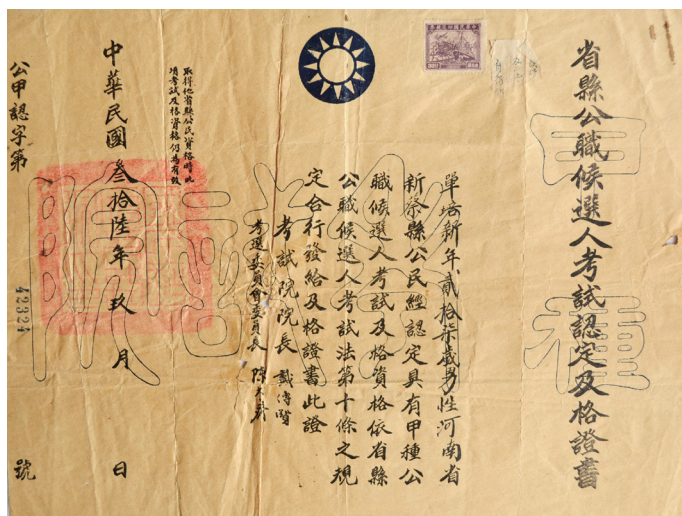 省縣公職候選人考試認定及格證書
甲種
單培新年貳拾柒歲男性河南省
新蔡縣公民經認定具有甲種公
職候選人考試及格資格依省縣
公職候選人考試法第十條之規
定合行發給及格證書此證
考試院院長 戴傳賢
考選委員會委員長 陳大齊
取得他省縣公民資格時此
項考試及格資格仍為有效
中華民國叁拾陸年玖月 日
公甲認字第 號
42324
考試院